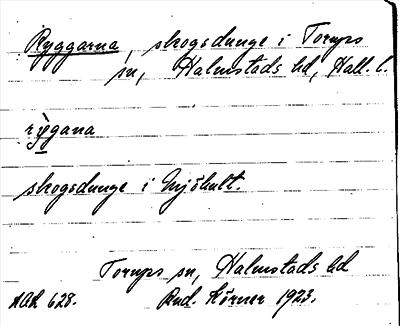 Ryggarna, skogsdunge i Torups
sn, Halmstads hd, Hall. l.
rỳgana
skogsdunge i Mjöhult.
Torups sn, Halmstads hd
AOK 628. Rud. Körner 1923.